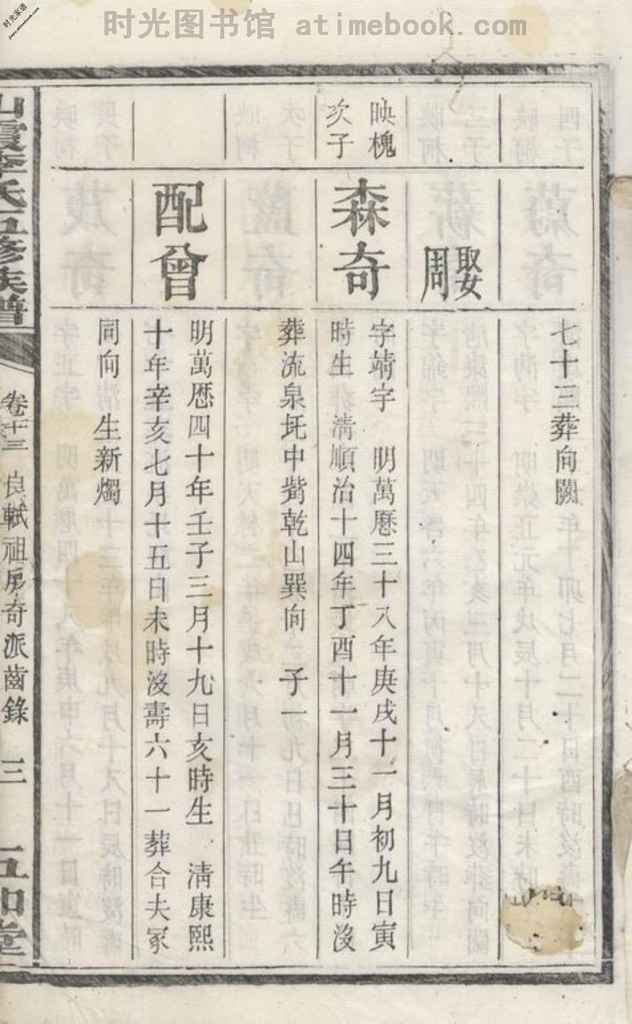 时光图书馆 atimebook.com
七十三葬向闕
娶周
映槐
次子
森奇
字靖宇 明萬厯三十八年庚戌十一月初九日寅
時生 淸順治十四年丁酉十一月三十日午時沒
葬流泉坑中嘴乾山巽向 子一
配曾
明萬厯四十年壬子三月十九日亥時生 淸康熙
十年辛亥七月十五日未時沒壽六十一葬合夫冢
同向 生新燭
山霞李氏五修族譜
卷十三 良軾祖房奇派齒錄 三 五和堂